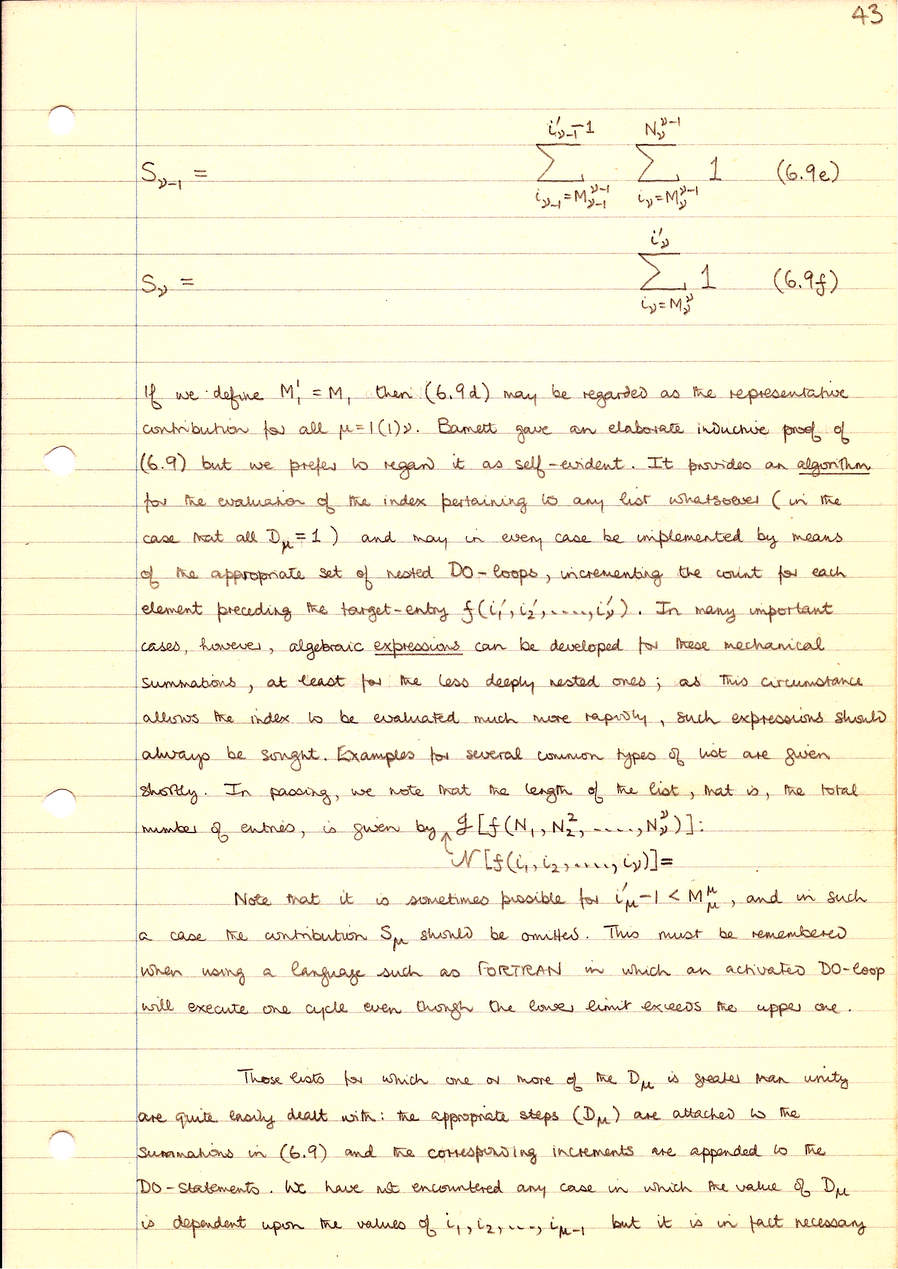 43
S_{ν-1} = \sum_{i_{ν-1}=M_{ν-1}^{ν-1}}^{i'_{ν-1}-1} \sum_{i_ν=M_ν^{ν-1}}^{N_ν^{ν-1}} 1 (6.9e)
S_ν = \sum_{i_ν=M_ν^ν}^{i'_ν} 1 (6.9f)
If we define M'_1 = M_1 then (6.9d) may be regarded as the representative
contribution for all μ=1(1)ν. Barnett gave an elaborate inductive proof of
(6.9) but we prefer to regard it as self-evident. It provides an algorithm
for the evaluation of the index pertaining to any list whatsoever (in the
case that all D_μ=1) and may in every case be implemented by means
of the appropriate set of nested DO-loops, incrementing the count for each
element preceding the target-entry f(i'_1, i'_2, ...., i'_ν). In many important
cases, however, algebraic expressions can be developed for these mechanical
summations, at least for the less deeply nested ones; as this circumstance
allows the index to be evaluated much more rapidly, such expressions should
always be sought. Examples for several common types of list are given
shortly. In passing, we note that the length of the list, that is, the total
number of entries, is given by J[f(N_1, N_2^2, ...., N_ν^ν)]:
N[f(i_1, i_2, ...., i_ν)]=
Note that it is sometimes possible for i'_μ-1 < M_μ^μ, and in such
a case the contribution S_μ should be omitted. This must be remembered
when using a language such as FORTRAN in which an activated DO-loop
will execute one cycle even though the lower limit exceeds the upper one.
Those lists for which one or more of the D_μ is greater than unity
are quite easily dealt with: the appropriate steps (D_μ) are attached to the
summations in (6.9) and the corresponding increments are appended to the
DO-statements. We have not encountered any case in which the value of D_μ
is dependent upon the values of i_1, i_2, ..., i_{μ-1} but it is in fact necessary